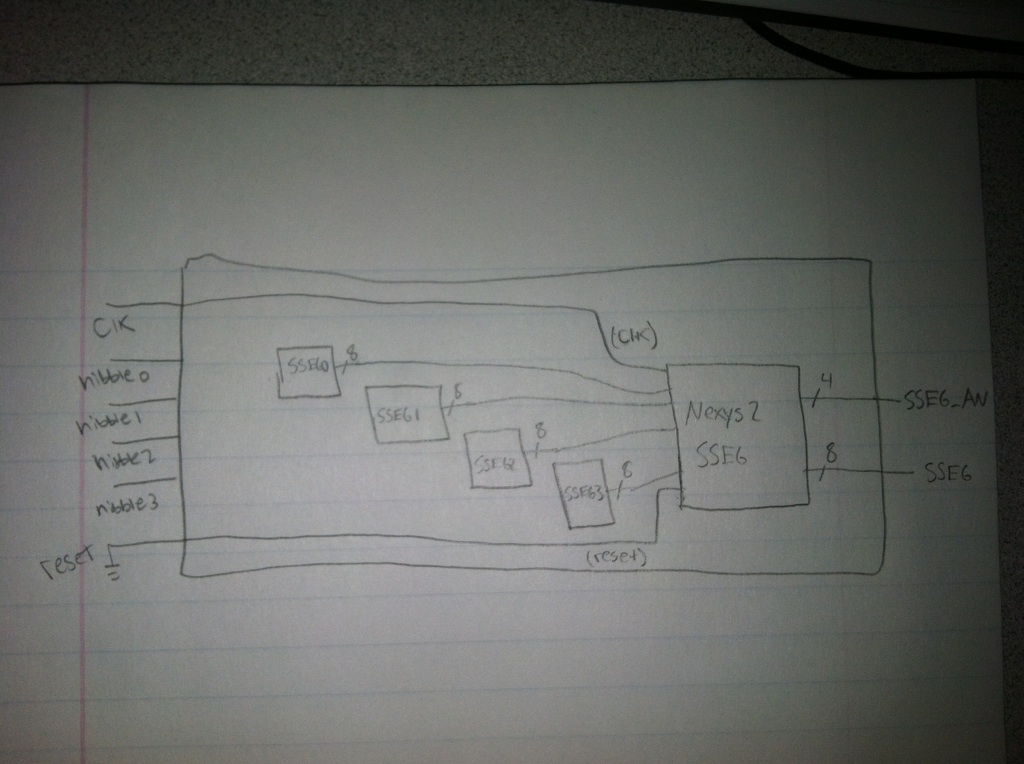 Clk
nibble0
nibble1
nibble2
nibble3
reset
(Clk)
SSEG0
8
SSEG1
8
SSEG2
8
SSEG3
8
(reset)
Nexys2
SSEG
4
SSEG_AN
8
SSEG